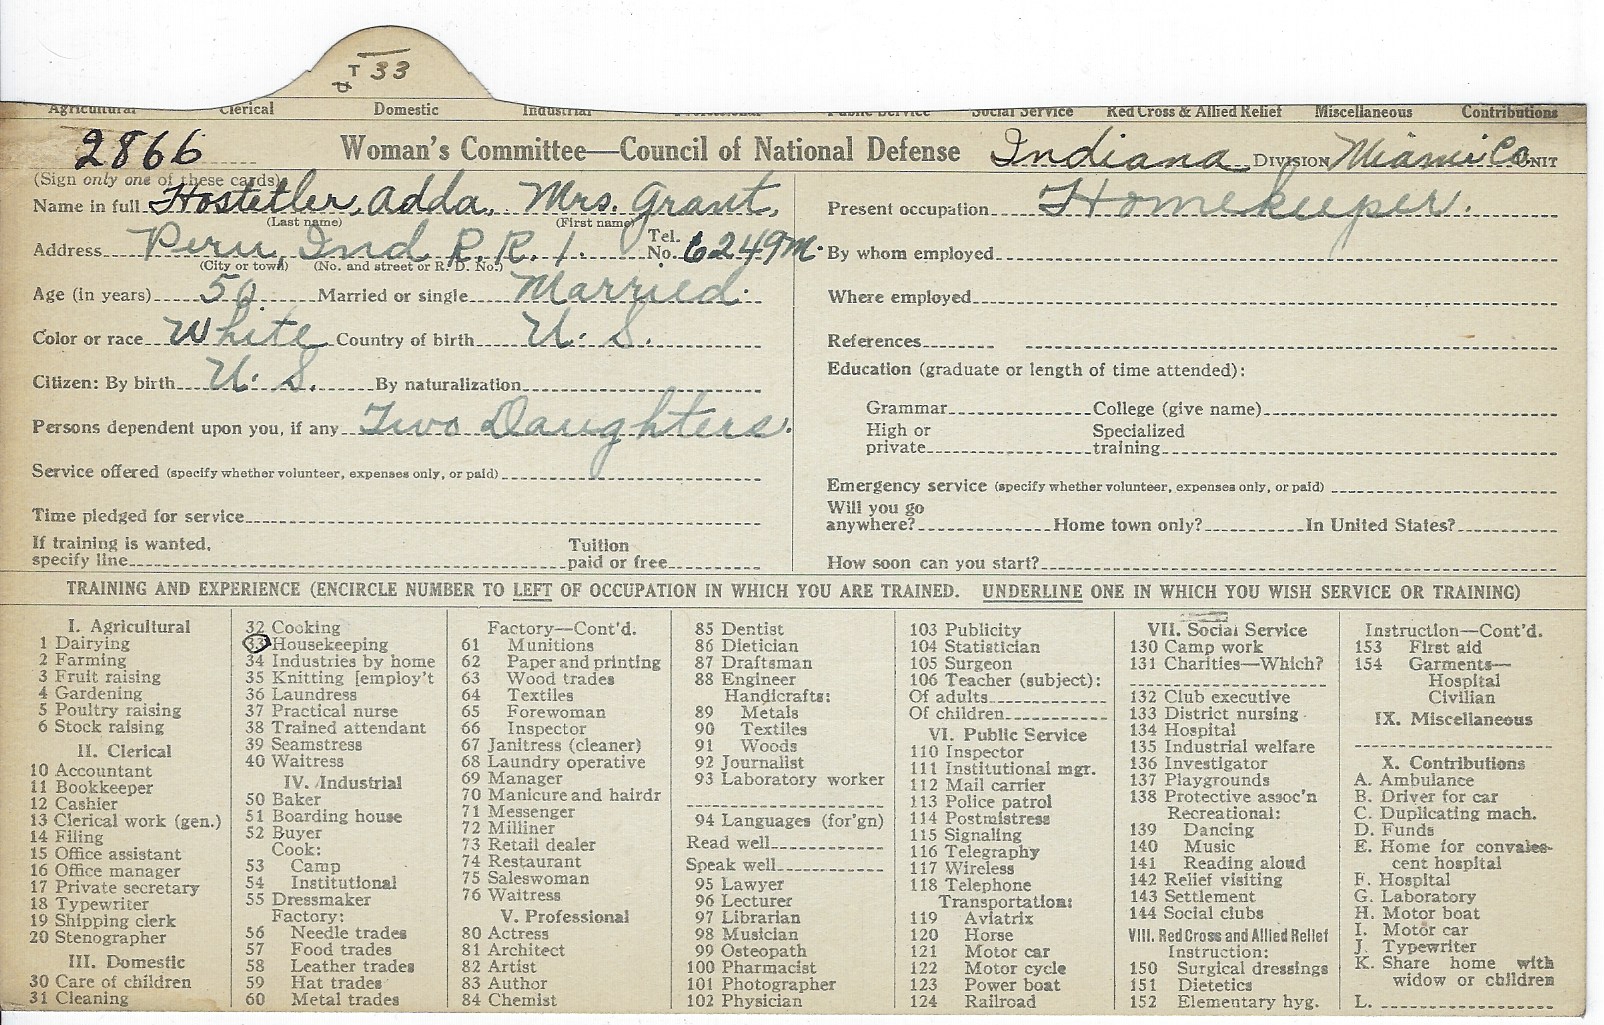 T 33
Agricultural Clerical Domestic Industrial Professional Public Service Social Service Red Cross & Allied Relief Miscellaneous Contributions
2866 Woman's Committee—Council of National Defense Indiana DIVISION Miami Co. UNIT
(Sign only one of these cards)
Name in full Hostetler, Adda, Mrs. Grant,
(Last name) (First name)
Address Peru, Ind R. R. 1. Tel. No. 6249M.
(City or town) (No. and street or R. D. No.)
Age (in years) 50 Married or single Married.
Color or race White Country of birth U. S.
Citizen: By birth U. S. By naturalization
Persons dependent upon you, if any Two Daughters.
Service offered (specify whether volunteer, expenses only, or paid)
Time pledged for service
If training is wanted, specify line Tuition paid or free
Present occupation Homekeeper.
By whom employed
Where employed
References
Education (graduate or length of time attended):
Grammar College (give name)
High or private Specialized training
Emergency service (specify whether volunteer, expenses only, or paid)
Will you go anywhere? Home town only? In United States?
How soon can you start?
TRAINING AND EXPERIENCE (ENCIRCLE NUMBER TO LEFT OF OCCUPATION IN WHICH YOU ARE TRAINED. UNDERLINE ONE IN WHICH YOU WISH SERVICE OR TRAINING)
I. Agricultural
1 Dairying
2 Farming
3 Fruit raising
4 Gardening
5 Poultry raising
6 Stock raising
II. Clerical
10 Accountant
11 Bookkeeper
12 Cashier
13 Clerical work (gen.)
14 Filing
15 Office assistant
16 Office manager
17 Private secretary
18 Typewriter
19 Shipping clerk
20 Stenographer
III. Domestic
30 Care of children
31 Cleaning
32 Cooking
33 Housekeeping
34 Industries by home
35 Knitting [employ't
36 Laundress
37 Practical nurse
38 Trained attendant
39 Seamstress
40 Waitress
IV. Industrial
50 Baker
51 Boarding house
52 Buyer
Cook:
53 Camp
54 Institutional
55 Dressmaker
Factory:
56 Needle trades
57 Food trades
58 Leather trades
59 Hat trades
60 Metal trades
Factory—Cont'd.
61 Munitions
62 Paper and printing
63 Wood trades
64 Textiles
65 Forewoman
66 Inspector
67 Janitress (cleaner)
68 Laundry operative
69 Manager
70 Manicure and hairdr
71 Messenger
72 Milliner
73 Retail dealer
74 Restaurant
75 Saleswoman
76 Waitress
V. Professional
80 Actress
81 Architect
82 Artist
83 Author
84 Chemist
85 Dentist
86 Dietician
87 Draftsman
88 Engineer
Handicrafts:
89 Metals
90 Textiles
91 Woods
92 Journalist
93 Laboratory worker
94 Languages (for'gn)
Read well
Speak well
95 Lawyer
96 Lecturer
97 Librarian
98 Musician
99 Osteopath
100 Pharmacist
101 Photographer
102 Physician
103 Publicity
104 Statistician
105 Surgeon
106 Teacher (subject):
Of adults
Of children
VI. Public Service
110 Inspector
111 Institutional mgr.
112 Mail carrier
113 Police patrol
114 Postmistress
115 Signaling
116 Telegraphy
117 Wireless
118 Telephone
Transportation:
119 Aviatrix
120 Horse
121 Motor car
122 Motor cycle
123 Power boat
124 Railroad
VII. Social Service
130 Camp work
131 Charities—Which?
132 Club executive
133 District nursing
134 Hospital
135 Industrial welfare
136 Investigator
137 Playgrounds
138 Protective assoc'n
Recreational:
139 Dancing
140 Music
141 Reading aloud
142 Relief visiting
143 Settlement
144 Social clubs
VIII. Red Cross and Allied Relief
Instruction:
150 Surgical dressings
151 Dietetics
152 Elementary hyg.
Instruction—Cont'd.
153 First aid
154 Garments—
Hospital
Civilian
IX. Miscellaneous
X. Contributions
A. Ambulance
B. Driver for car
C. Duplicating mach.
D. Funds
E. Home for convales-
cent hospital
F. Hospital
G. Laboratory
H. Motor boat
I. Motor car
J. Typewriter
K. Share home with
widow or children
L.